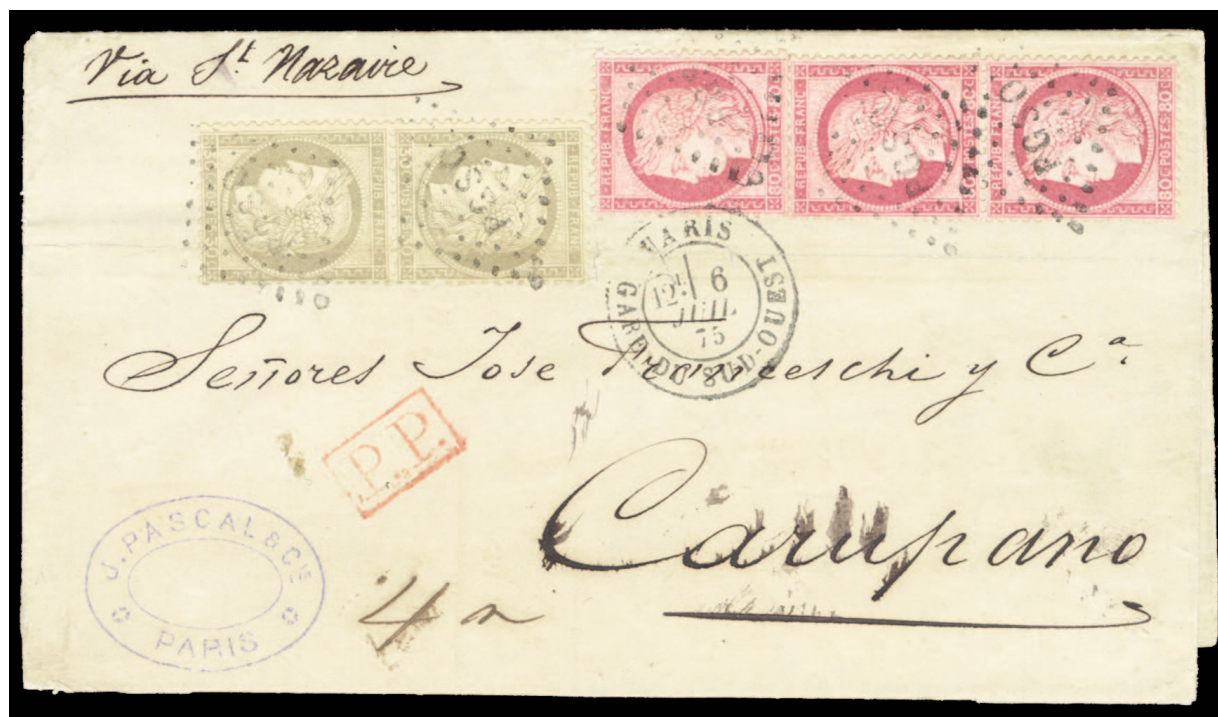 Via St. Nazaire
REPUB FRANC
80 C POSTES 80 C
REPUB FRANC
80 C POSTES 80 C
REPUB FRANC
80 C POSTES 80 C
PARIS
12E 6
JUIL
75
GARE-DU-SUD-OUEST
Señores Jose Franceschi y Ca.
P.P.
Carupano
J. PASCAL & CIE
PARIS
4